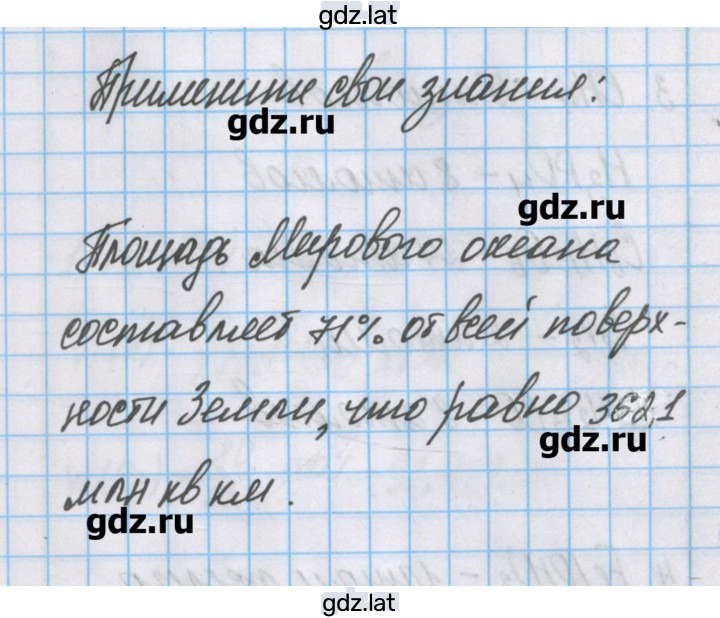 gdz.lat
Примените свои знания:
gdz.ru
gdz.ru
Площадь Мирового океана
составляет 71% от всей поверх-
ности Земли, что равно 362,1
gdz.ru
млн кв км.
gdz.ru
gdz.lat